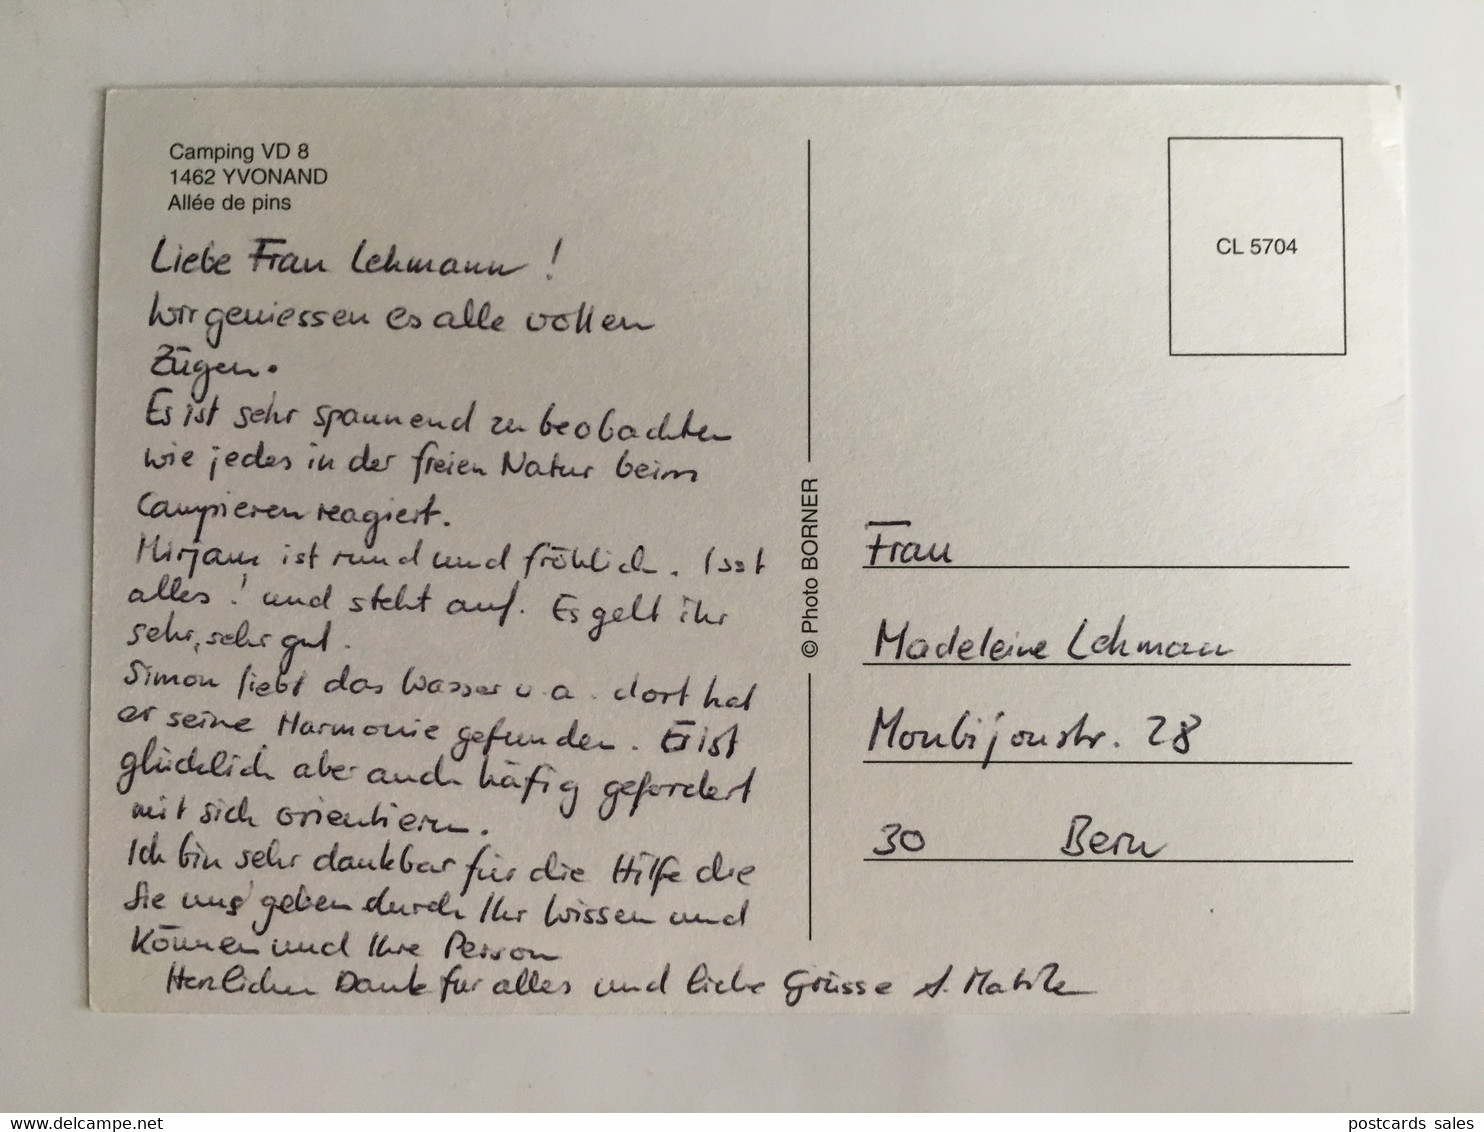 Camping VD 8
1462 YVONAND
Allée de pins
Liebe Frau Lehmann !
Wir geniessen es alle vollen
Zügen.
Es ist sehr spannend zu beobachten
wie jedes in der freien Natur beim
Campieren reagiert.
Mirjam ist rund und fröhlich. Isst
alles! und steht auf. Es geht ihr
sehr, sehr gut.
Simon liebt das Wasser u.a. dort hat
er seine Harmonie gefunden. Er ist
glücklich aber auch häufig gefordert
mit sich orientieren.
Ich bin sehr dankbar für die Hilfe die
Sie uns geben durch Ihr Wissen und
Können und Ihre Person
Herzlichen Dank für alles und liebe Grüsse
© Photo BORNER
CL 5704
Frau
Madeleine Lehmann
Monbijoustr. 28
30 Bern
www.delcampe.net
postcards sales